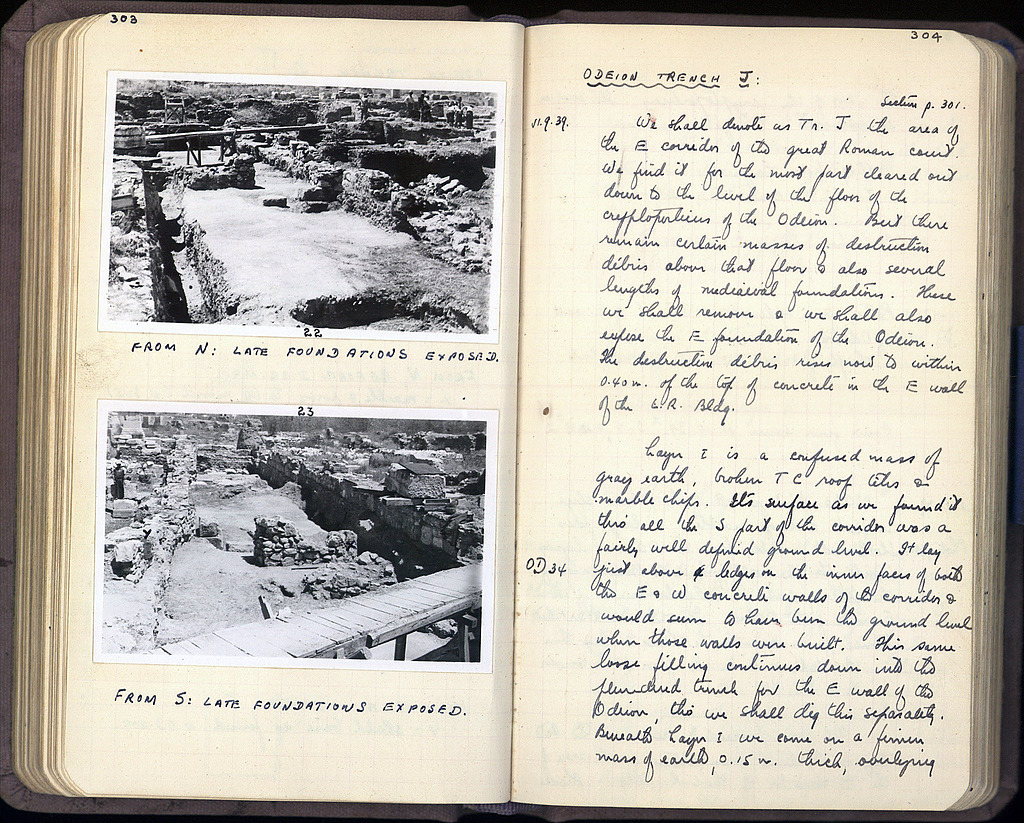 303
22
FROM N: LATE FOUNDATIONS EXPOSED.
23
FROM S: LATE FOUNDATIONS EXPOSED.
304
ODEION TRENCH J:
Section p. 301.
11.9.39.
We shall denote as Tr. J the area of
the E corridor of the great Roman court.
We find it for the most part cleared out
down to the level of the floor of the
cryptoporticus of the Odeion. But there
remain certain masses of destruction
débris above that floor & also several
lengths of mediaeval foundations. These
we shall remove & we shall also
expose the E foundation of the Odeion.
The destruction débris rises now to within
0.40 m. of the top of concrete in the E wall
of the L.R. Bldg.
Layer I is a confused mass of
gray earth, broken TC roof tiles &
marble chips. Its surface as we found it
thro all the S part of the corridor was a
fairly well defined ground level. It lay
OD 34
just above ledges on the inner faces of both
the E & W concrete walls of the corridor &
would seem to have been the ground level
when those walls were built. This same
loose filling continues down into the
plundered trench for the E wall of the
Odeion, tho we shall dig this separately.
Beneath Layer I we come on a firmer
mass of earth, 0.15 m. thick, overlying